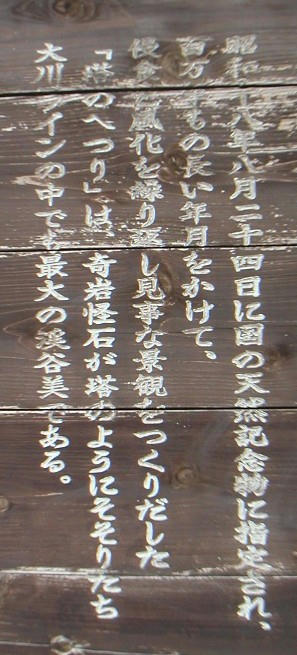 昭和十八年八月二十四日に国の天然記念物に指定され、
百万年もの長い年月をかけて、
侵食と風化を繰り返し見事な景観をつくりだした
「塔のへつり」は、奇岩怪石が塔のようにそそりたち
大川ラインの中でも最大の渓谷美である。